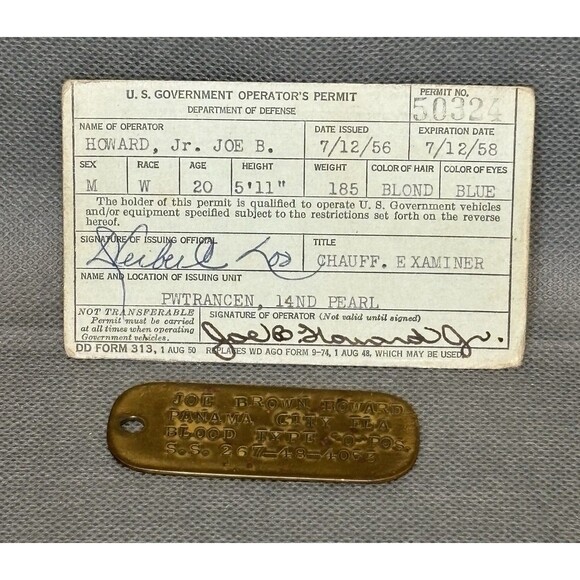 U. S. GOVERNMENT OPERATOR'S PERMIT
DEPARTMENT OF DEFENSE
PERMIT NO.
50324
NAME OF OPERATOR
HOWARD, Jr. JOE B.
DATE ISSUED
7/12/56
EXPIRATION DATE
7/12/58
SEX RACE AGE HEIGHT WEIGHT COLOR OF HAIR COLOR OF EYES
M W 20 5'11" 185 BLOND BLUE
The holder of this permit is qualified to operate U. S. Government vehicles
and/or equipment specified subject to the restrictions set forth on the reverse
hereof.
SIGNATURE OF ISSUING OFFICIAL
TITLE
CHAUFF. EXAMINER
NAME AND LOCATION OF ISSUING UNIT
PWTRANCEN, 14ND PEARL
NOT TRANSFERABLE
Permit must be carried
at all times when operating
Government vehicles.
SIGNATURE OF OPERATOR (Not valid until signed)
Joe B Howard Jr.
DD FORM 313, 1 AUG 50 REPLACES WD AGO FORM 9-74, 1 AUG 48, WHICH MAY BE USED.
JOE BROWN HOWARD
PANAMA CITY FLA
BLOOD TYPE O POS.
S.S. 267-48-